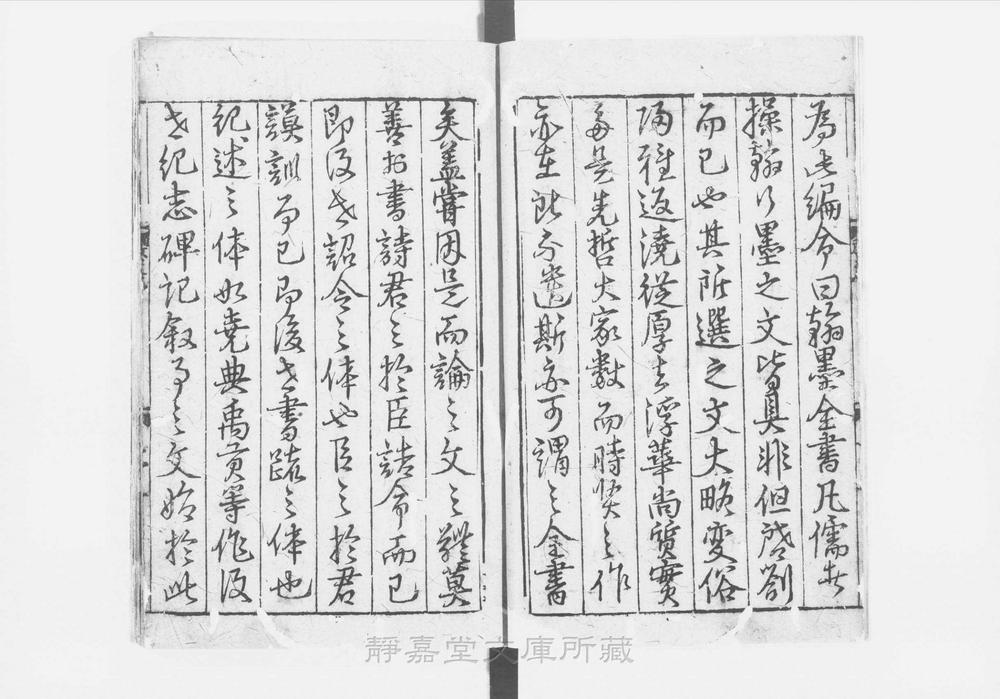 為此編命曰翰墨全書凡儒者
操翰行墨之文皆具非但啓劄
而已也其所選之文大略變俗
歸雅返澆從厚去浮華尚質實
多是先哲大家數而時賢之作
亦在所不遺斯亦可謂之全書
矣蓋嘗因是而論之文之體莫
善於書詩君之於臣誥命而已
即後世詔令之体也臣之於君
謨訓而已即後世書疏之体也
紀述之体如堯典禹貢等作後
世紀志碑記敘事之文始於此
靜嘉堂文庫所藏